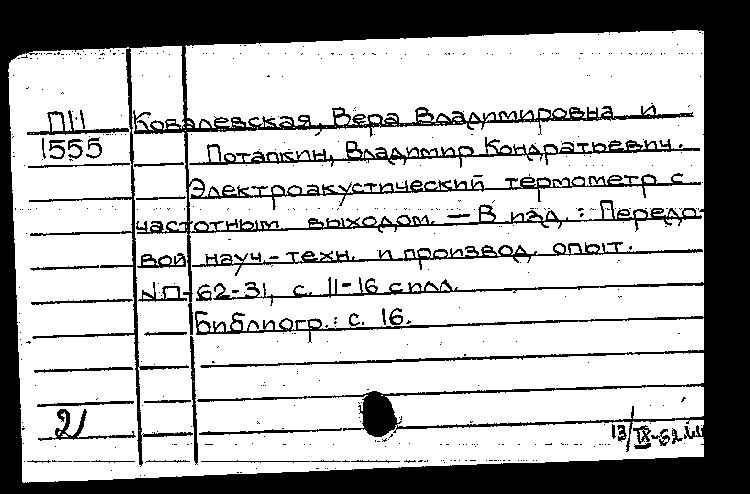 П11 Ковалевская, Вера Владимировна и
1555 Потапкин, Владимир Кондратьевич.
Электроакустический термометр с
частотным выходом. — В изд.: Передо-
вой науч.-техн. и производ. опыт.
№П-62-31, с. 11-16 с илл.
Библиогр.: с. 16.
21
13/IX-62